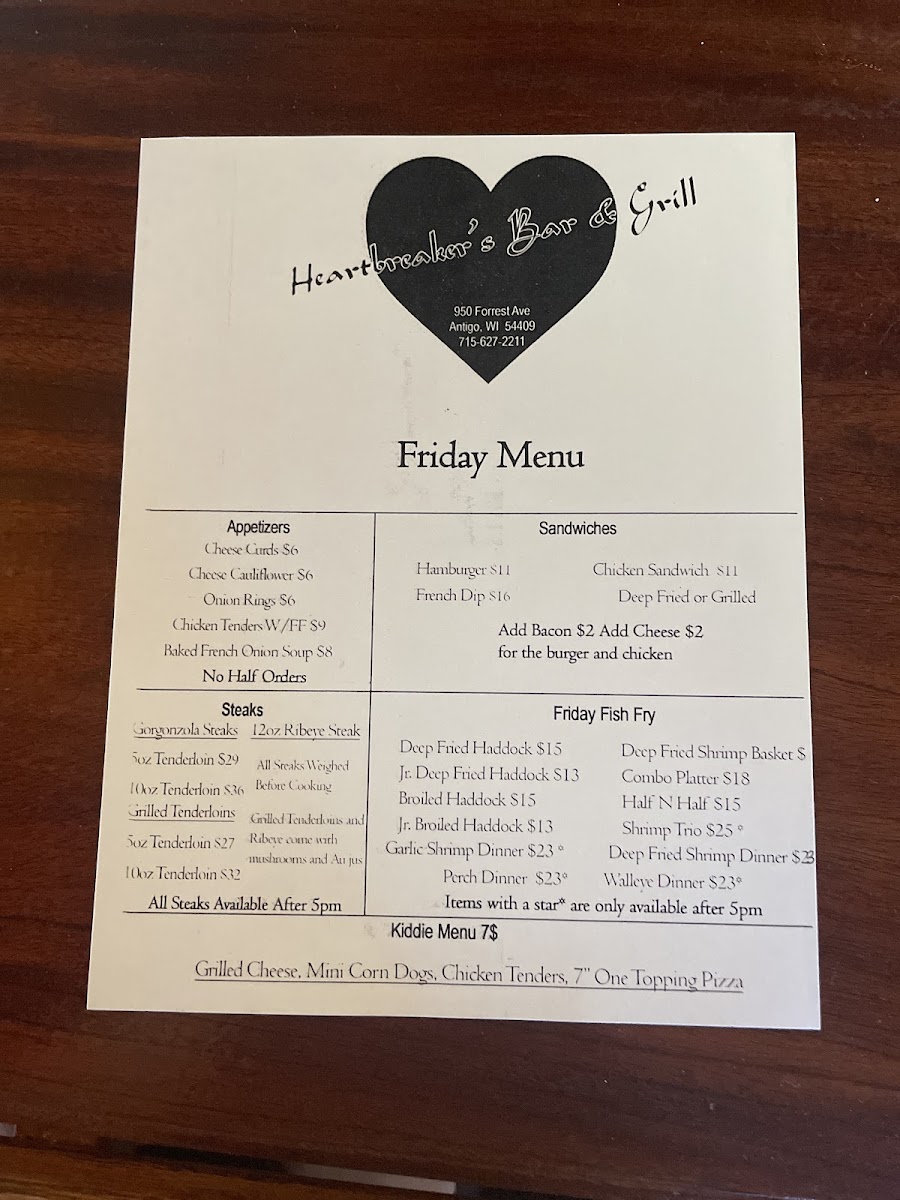 Heartbreaker's Bar & Grill
950 Forrest Ave
Antigo, WI 54409
715-627-2211
Friday Menu
Appetizers
Cheese Curds $6
Cheese Cauliflower $6
Onion Rings $6
Chicken Tenders W/FF $9
Baked French Onion Soup $8
No Half Orders
Sandwiches
Hamburger $11
Chicken Sandwich $11
French Dip $16
Deep Fried or Grilled
Add Bacon $2 Add Cheese $2
for the burger and chicken
Steaks
Gorgonzola Steaks
5oz Tenderloin $29
10oz Tenderloin $36
Grilled Tenderloins
5oz Tenderloin $27
10oz Tenderloin $32
12oz Ribeye Steak
All Steaks Weighed
Before Cooking
Grilled Tenderloins and
Ribeye come with
mushrooms and Au jus
All Steaks Available After 5pm
Friday Fish Fry
Deep Fried Haddock $15
Jr. Deep Fried Haddock $13
Broiled Haddock $15
Jr. Broiled Haddock $13
Garlic Shrimp Dinner $23 *
Perch Dinner $23*
Deep Fried Shrimp Basket $
Combo Platter $18
Half N Half $15
Shrimp Trio $25 *
Deep Fried Shrimp Dinner $23
Walleye Dinner $23*
Items with a star* are only available after 5pm
Kiddie Menu 7$
Grilled Cheese, Mini Corn Dogs, Chicken Tenders, 7" One Topping Pizza